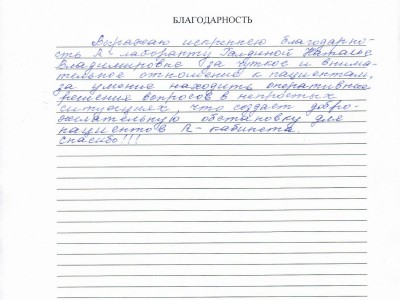 БЛАГОДАРНОСТЬ
Выражаю искреннею благодарно-
сть R-лаборанту Галдиной Наталье
Владимировне за чуткое и внима-
тельное отношение к пациентам,
за умение находить оперативные
решение вопросов в непростых
ситуациях, что создает добро-
желательную обстановку для
пациентов R-кабинета.
Спасибо!!!